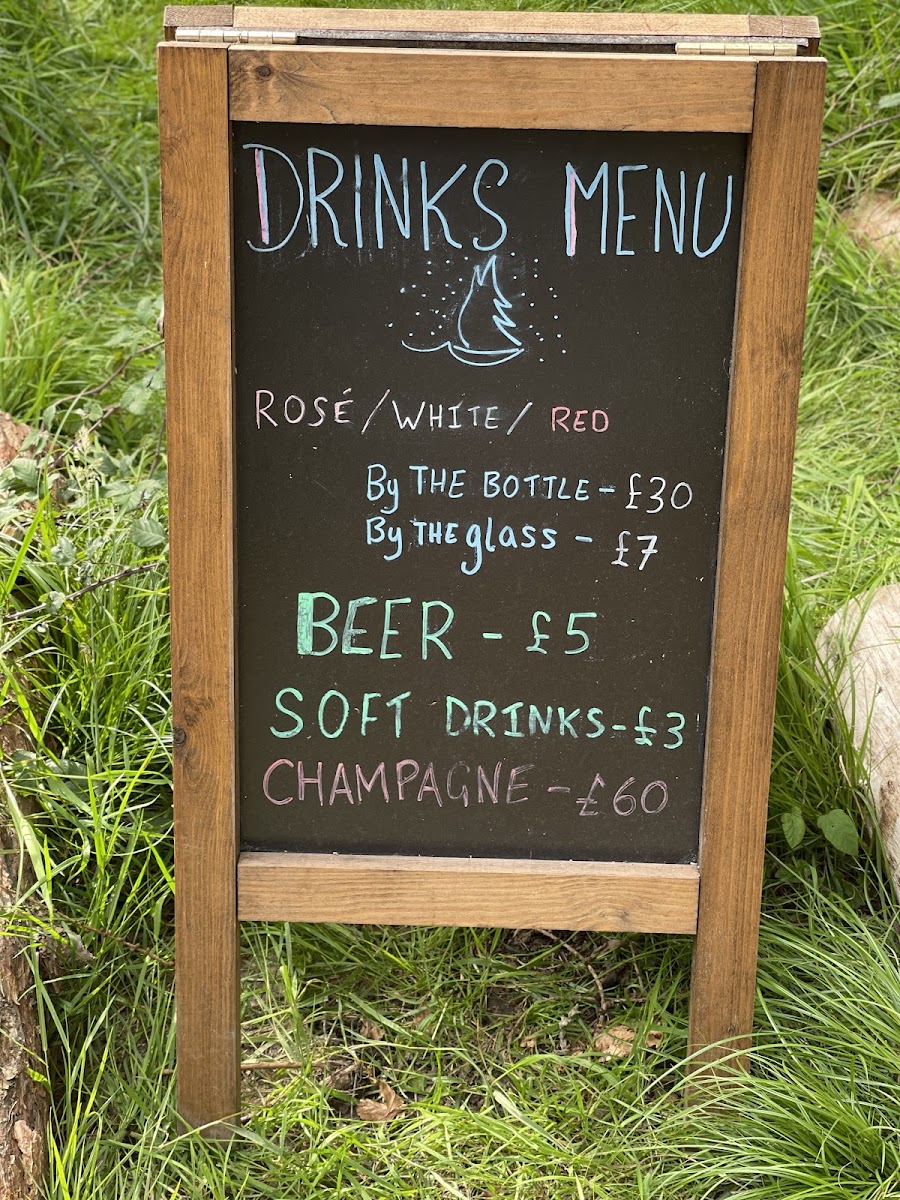 DRINKS MENU
ROSÉ/WHITE/RED
By THE BOTTLE - £30
By THE glass - £7
BEER - £5
SOFT DRINKS - £3
CHAMPAGNE - £60